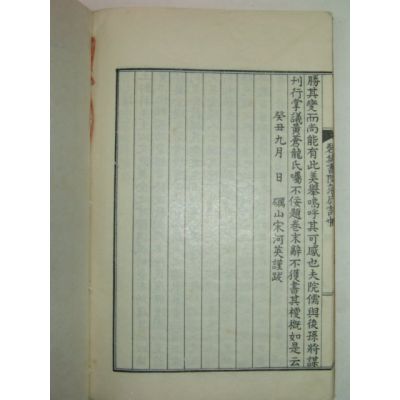 勝其變而尚能有此美擧嗚呼其可感也夫院儒與後孫將謀
刊行掌議黃蒼龍氏囑不佞題卷末辭不獲書其梗槪如是云
癸丑九月 日 礪山宋河英謹跋